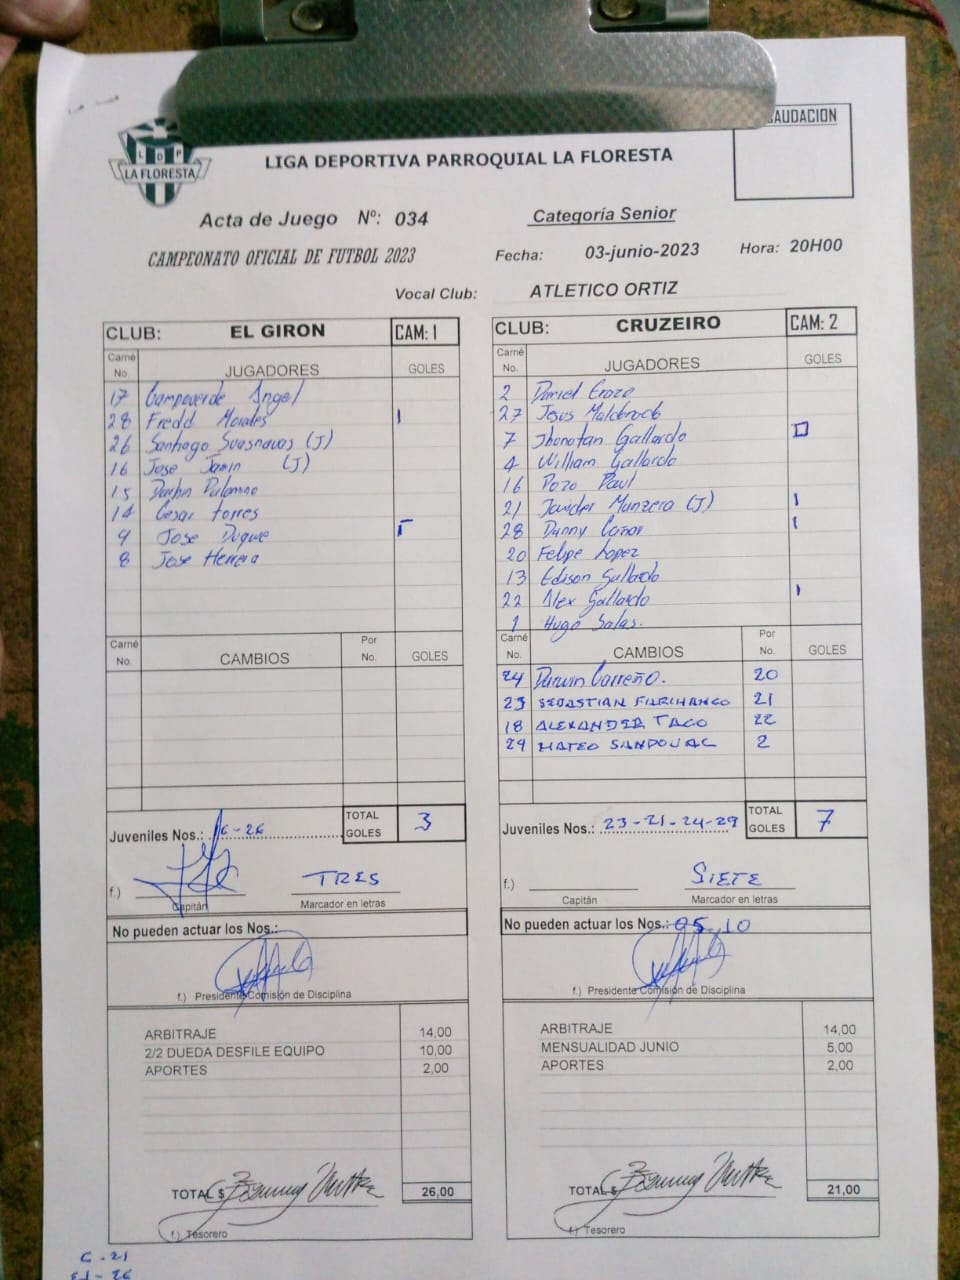 AUDACION
L D P
LA FLORESTA
LIGA DEPORTIVA PARROQUIAL LA FLORESTA
Acta de Juego Nº: 034
Categoría Senior
CAMPEONATO OFICIAL DE FUTBOL 2023
Fecha: 03-junio-2023 Hora: 20H00
Vocal Club: ATLETICO ORTIZ
CLUB: EL GIRON CAM: 1
Carné No. JUGADORES GOLES
17 Campoverde Angel
28 Fredd Morales 1
26 Santiago Suasnavas (J)
16 Jose Jamin (J)
15 Darwin Palomino
14 Cesar Torres
9 Jose Duque
8 Jose Herrera
Carné No. CAMBIOS Por No. GOLES
Juveniles Nos.: 16-26
TOTAL GOLES 3
f.) Capitán
TRES
Marcador en letras
No pueden actuar los Nos.:
f.) Presidente Comisión de Disciplina
ARBITRAJE 14,00
2/2 DUEDA DESFILE EQUIPO 10,00
APORTES 2,00
TOTAL $ 26,00
f.) Tesorero
CLUB: CRUZEIRO CAM: 2
Carné No. JUGADORES GOLES
2 Daniel Erazo
27 Jesus
7 Jhonatan Gallardo
4 William Gallardo
16 Pozo Paul
21 (J) 1
28 Danny 1
20 Felipe Lopez
13 Edison Gallardo
22 Alex Gallardo 1
1 Hugo Salas.
Carné No. CAMBIOS Por No. GOLES
24 Darwin Carreño. 20
23 SEBASTIAN FARINANGO 21
18 ALEXANDER TACO 22
29 MATEO SANDOVAL 2
Juveniles Nos.: 23-21-24-29
TOTAL GOLES 7
f.) Capitán
SIETE
Marcador en letras
No pueden actuar los Nos.: 05, 10
f.) Presidente Comisión de Disciplina
ARBITRAJE 14,00
MENSUALIDAD JUNIO 5,00
APORTES 2,00
TOTAL $ 21,00
f.) Tesorero
C-21